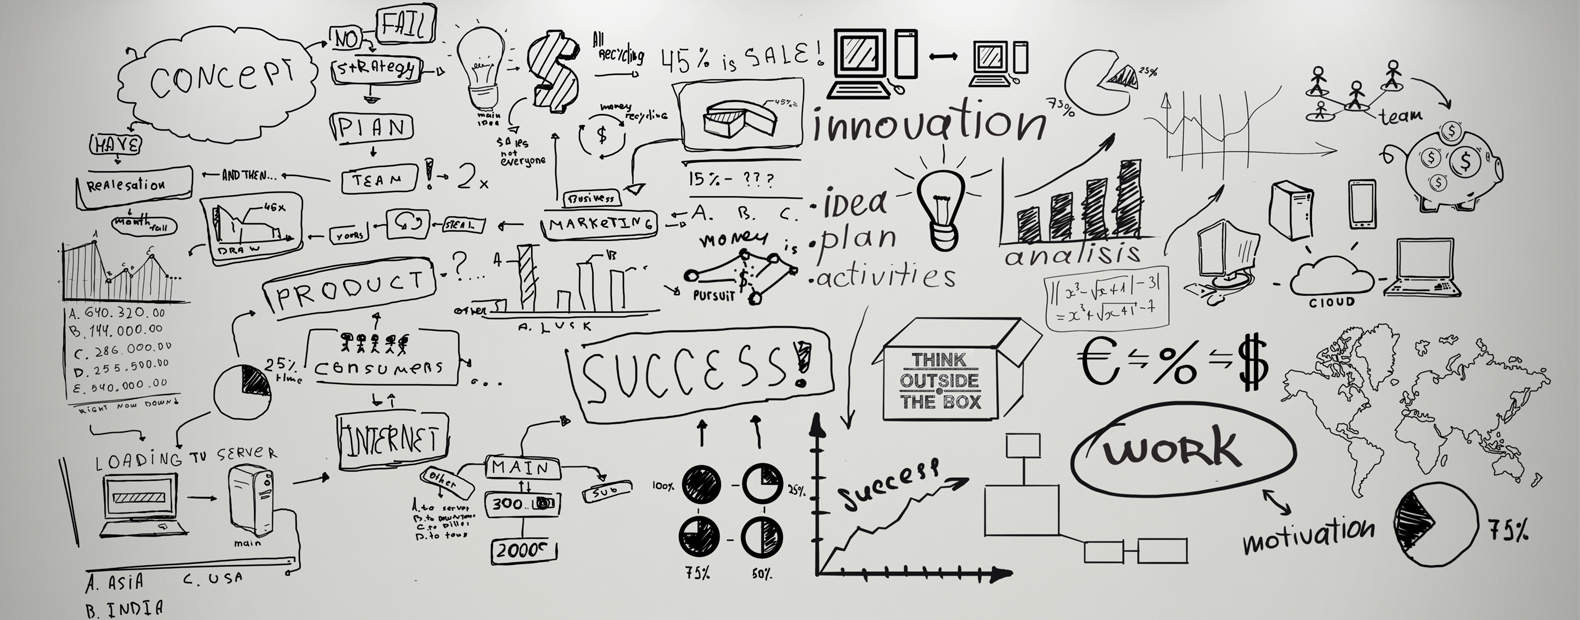 CONCEPT
NO
FAIL
STRATEGY
PLAN
TEAM
! → 2x
HAVE
REALESATION
AND THEN...
month fall
46x
DRAW
YOURS
IDEAL
main idea
SALES
not
everyone
All
RECYCLING
money
recycling
$
45% is SALE!
45%
15% - ???
A. B. C.
Business
MARKETING
MONEY is
PURSUIT
$
innovation
• idea
• plan
• activities
75%
25%
analisis
team
$
$
$
$
CLOUD
||x³-√x+1|-3|
=x³+√x+1|-7
A
B
C
A. 640.320.00
B. 144.000.00
C. 286.000.00
D. 255.500.00
E. 540.000.00
RIGHT NOW DOWN↓
PRODUCT
- ?...
A
B
C
other
A. LUSK
25%
time
CONSUMERS
...
INTERNET
LOADING TV SERVER
main
A. ASIA C. USA
B. INDIA
MAIN
other
SUB
A. to server
C. to biller
D. to tous
300..
2000€
SUCCESS!
100%
25%
75%
50%
success
THINK
OUTSIDE
THE BOX
€ ⇆ % ⇆ $
WORK
motivation
75%